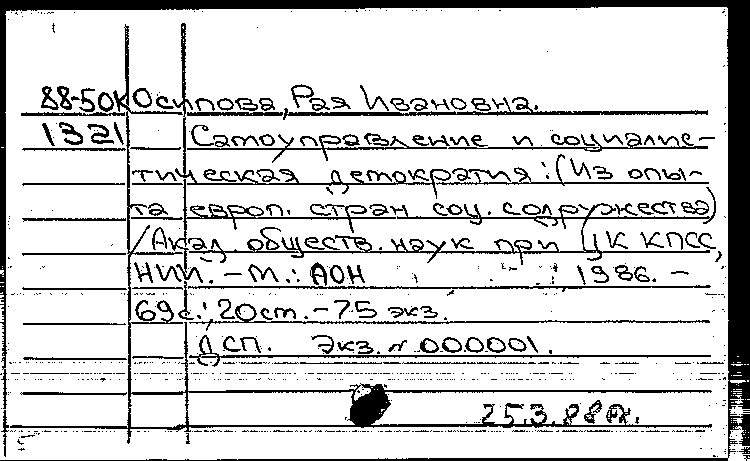 88-50К Осипова, Рая Ивановна.
1321 Самоуправление и социалис-
тическая демократия : (Из опы-
та европ. стран соц. содружества)
/Акад. обществ. наук при ЦК КПСС,
НИИ. – М. : АОН 1986. –
69 с.; 20 см. – 75 экз.
ДСП. Экз. № 000001.
25.3.88